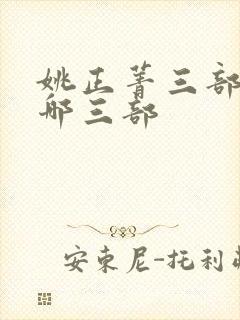 姚正菁三部
那三部
安东尼-托利